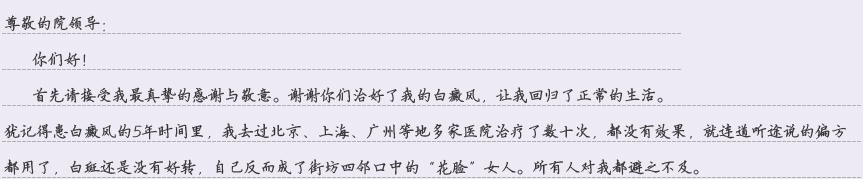 尊敬的院领导：
你们好！
首先请接受我最真挚的感谢与敬意。谢谢你们治好了我的白癜风，让我回归了正常的生活。
犹记得患白癜风的5年时间里，我去过北京、上海、广州等地多家医院治疗了数十次，都没有效果，就连道听途说的偏方
都用了，白斑还是没有好转，自己反而成了街坊四邻口中的“花脸”女人。所有人对我都避之不及。